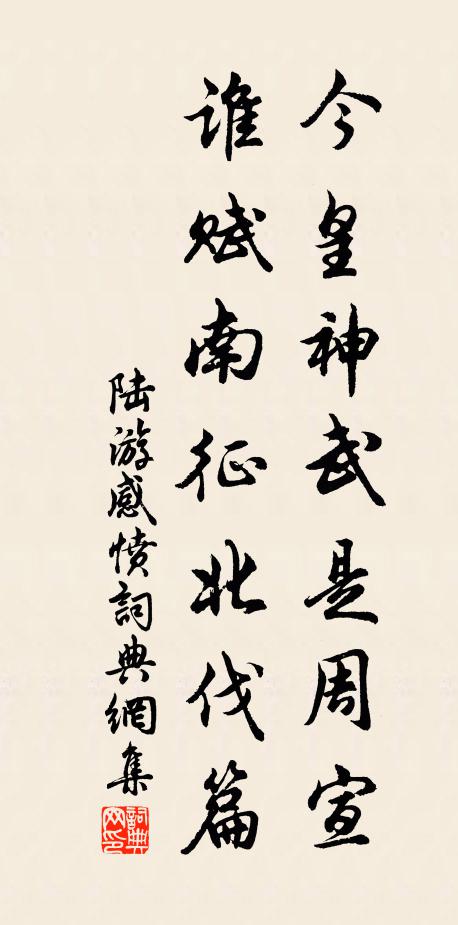 今皇神武是周宣
谁赋南征北伐篇
陆游感愤詞典網集
詞典网印